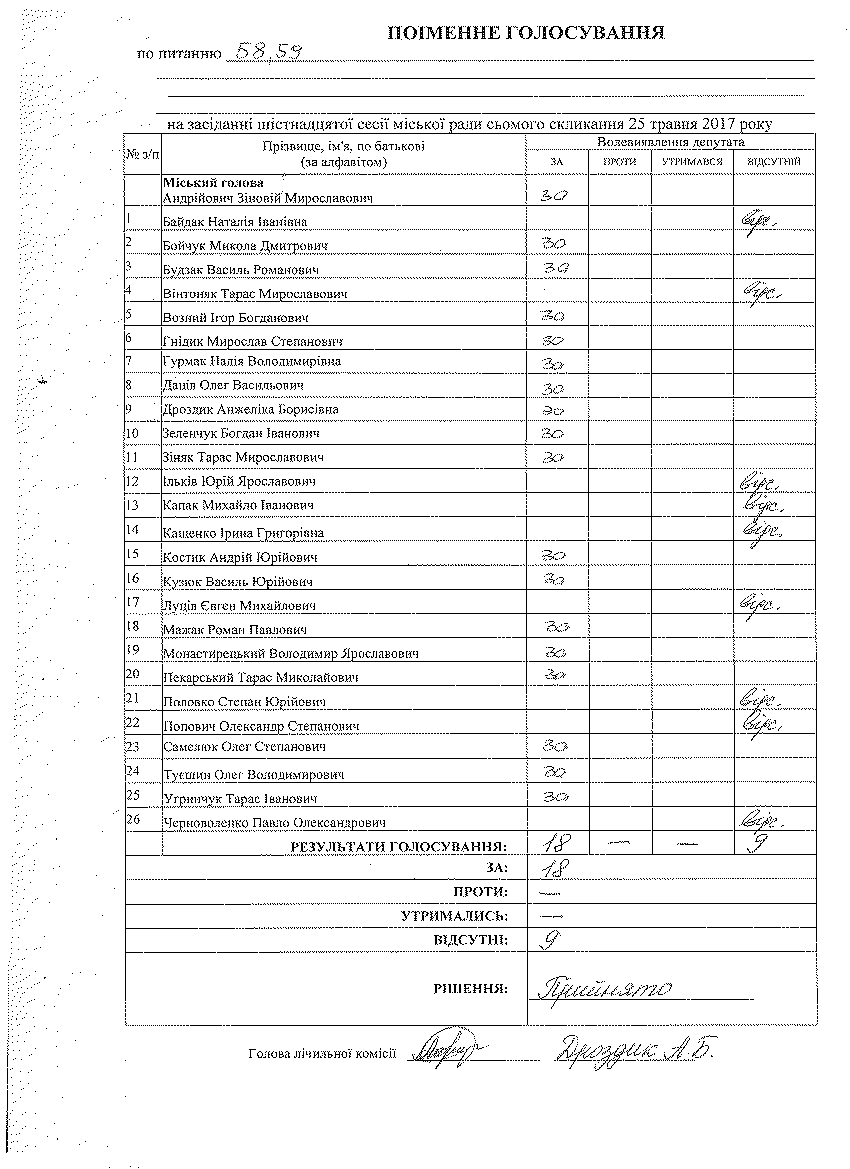 ПОІМЕННЕ ГОЛОСУВАННЯ
по питанню 58,59
на засіданні шістнадцятої сесії міської ради сьомого скликання 25 травня 2017 року
№ з/п Прізвище, ім'я, по батькові (за алфавітом) Волевиявлення депутата
ЗА ПРОТИ УТРИМАВСЯ ВІДСУТНІЙ
Міський голова
Андрійович Зіновій Мирославович за
1 Байдак Наталія Іванівна відс.
2 Бойчук Микола Дмитрович за
3 Будзак Василь Романович за
4 Вінтоняк Тарас Мирославович відс.
5 Возний Ігор Богданович за
6 Гнідик Мирослав Степанович за
7 Гурмак Надія Володимирівна за
8 Даців Олег Васильович за
9 Дроздик Анжеліка Борисівна за
10 Зеленчук Богдан Іванович за
11 Зіняк Тарас Мирославович за
12 Ільків Юрій Ярославович відс.
13 Капак Михайло Іванович відс.
14 Кащенко Ірина Григорівна відс.
15 Костик Андрій Юрійович за
16 Кузюк Василь Юрійович за
17 Луців Євген Михайлович відс.
18 Мажак Роман Павлович за
19 Монастирецький Володимир Ярославович за
20 Пекарський Тарас Миколайович за
21 Половко Степан Юрійович відс.
22 Попович Олександр Степанович відс.
23 Самелюк Олег Степанович за
24 Туєшин Олег Володимирович за
25 Угринчук Тарас Іванович за
26 Черноволенко Павло Олександрович відс.
РЕЗУЛЬТАТИ ГОЛОСУВАННЯ: 18 — — 9
ЗА: 18
ПРОТИ: —
УТРИМАЛИСЬ: —
ВІДСУТНІ: 9
РІШЕННЯ: Прийнято
Голова лічильної комісії Дроздик А.Б.